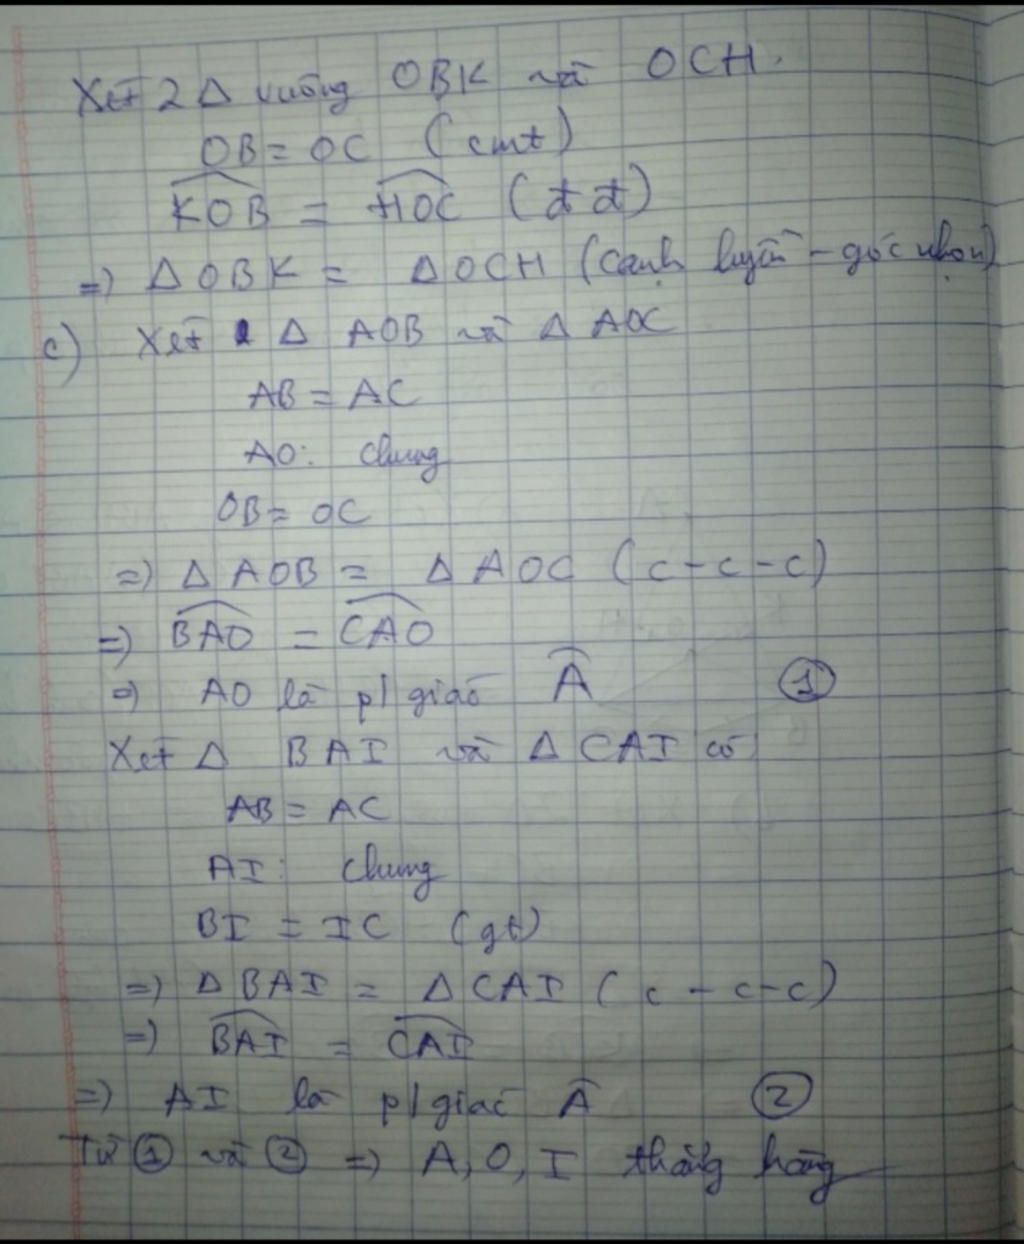 Xét 2 Δ vuông OBK và OCH.
OB = OC (cmt)
$\widehat{KOB}$ = $\widehat{HOC}$ (đđ)
=) Δ OBK = Δ OCH (cạnh huyền - góc nhọn)
c) Xét Δ AOB và Δ AOC
AB = AC
AO: chung
OB = OC
=) Δ AOB = Δ AOC (c - c - c)
=) $\widehat{BAO}$ = $\widehat{CAO}$
=) AO là p/giác $\widehat{A}$ ①
Xét Δ BAI và Δ CAI có
AB = AC
AI: chung
BI = IC (gt)
=) Δ BAI = Δ CAI (c - c - c)
=) $\widehat{BAI}$ = $\widehat{CAI}$
=) AI là p/giác $\widehat{A}$ ②
Từ ① và ② =) A, O, I thẳng hàng